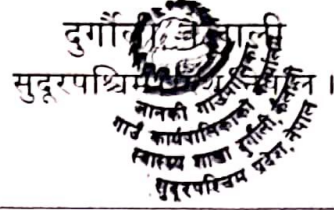 दुर्गौली
सुदूरपश्चिम
जानकी गाउँपालिका
गाउँ कार्यपालिकाको कार्यालय
स्वास्थ्य शाखा दुर्गौली, कैलाली
सुदूरपश्चिम प्रदेश, नेपाल